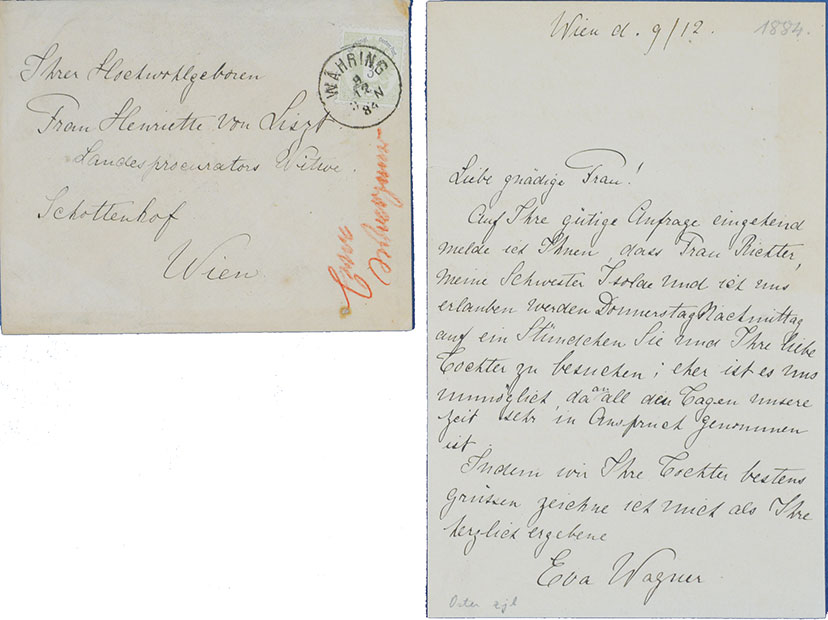 Ihrer Hochwohlgeboren
Frau Henriette von Liszt
Landesprocurators Witwe.
Schottenhof
Wien
WÄHRING
9
12
84
N
Wien d. 9/12.
1884.
Liebe gnädige Frau!
Auf Ihre gütige Anfrage eingehend
melde ich Ihnen, dass Frau Richter,
meine Schwester Isolde und ich uns
erlauben werden Donnerstag Nachmittag
auf ein Stündchen Sie und Ihre liebe
Tochter zu besuchen; eher ist es uns
unmöglich, da an all den Tagen unsere
Zeit sehr in Anspruch genommen
ist.
Indem wir Ihre Tochter bestens
grüssen zeichne ich mich als Ihre
herzlich ergebene
Eva Wagner.